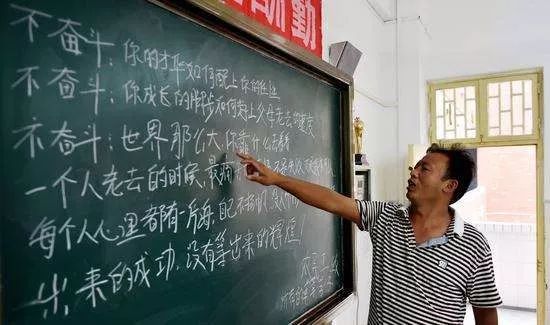 勤
不奋斗:你的才华如何配上你的任性
不奋斗:你成长的脚步如何赶上父母老去的速度
不奋斗:世界那么大,你靠什么去看看
一个人老去的时候,最痛
每个人心理都有一片海,自己不扬帆,没人
出来的成功,没有等出来的辉煌!